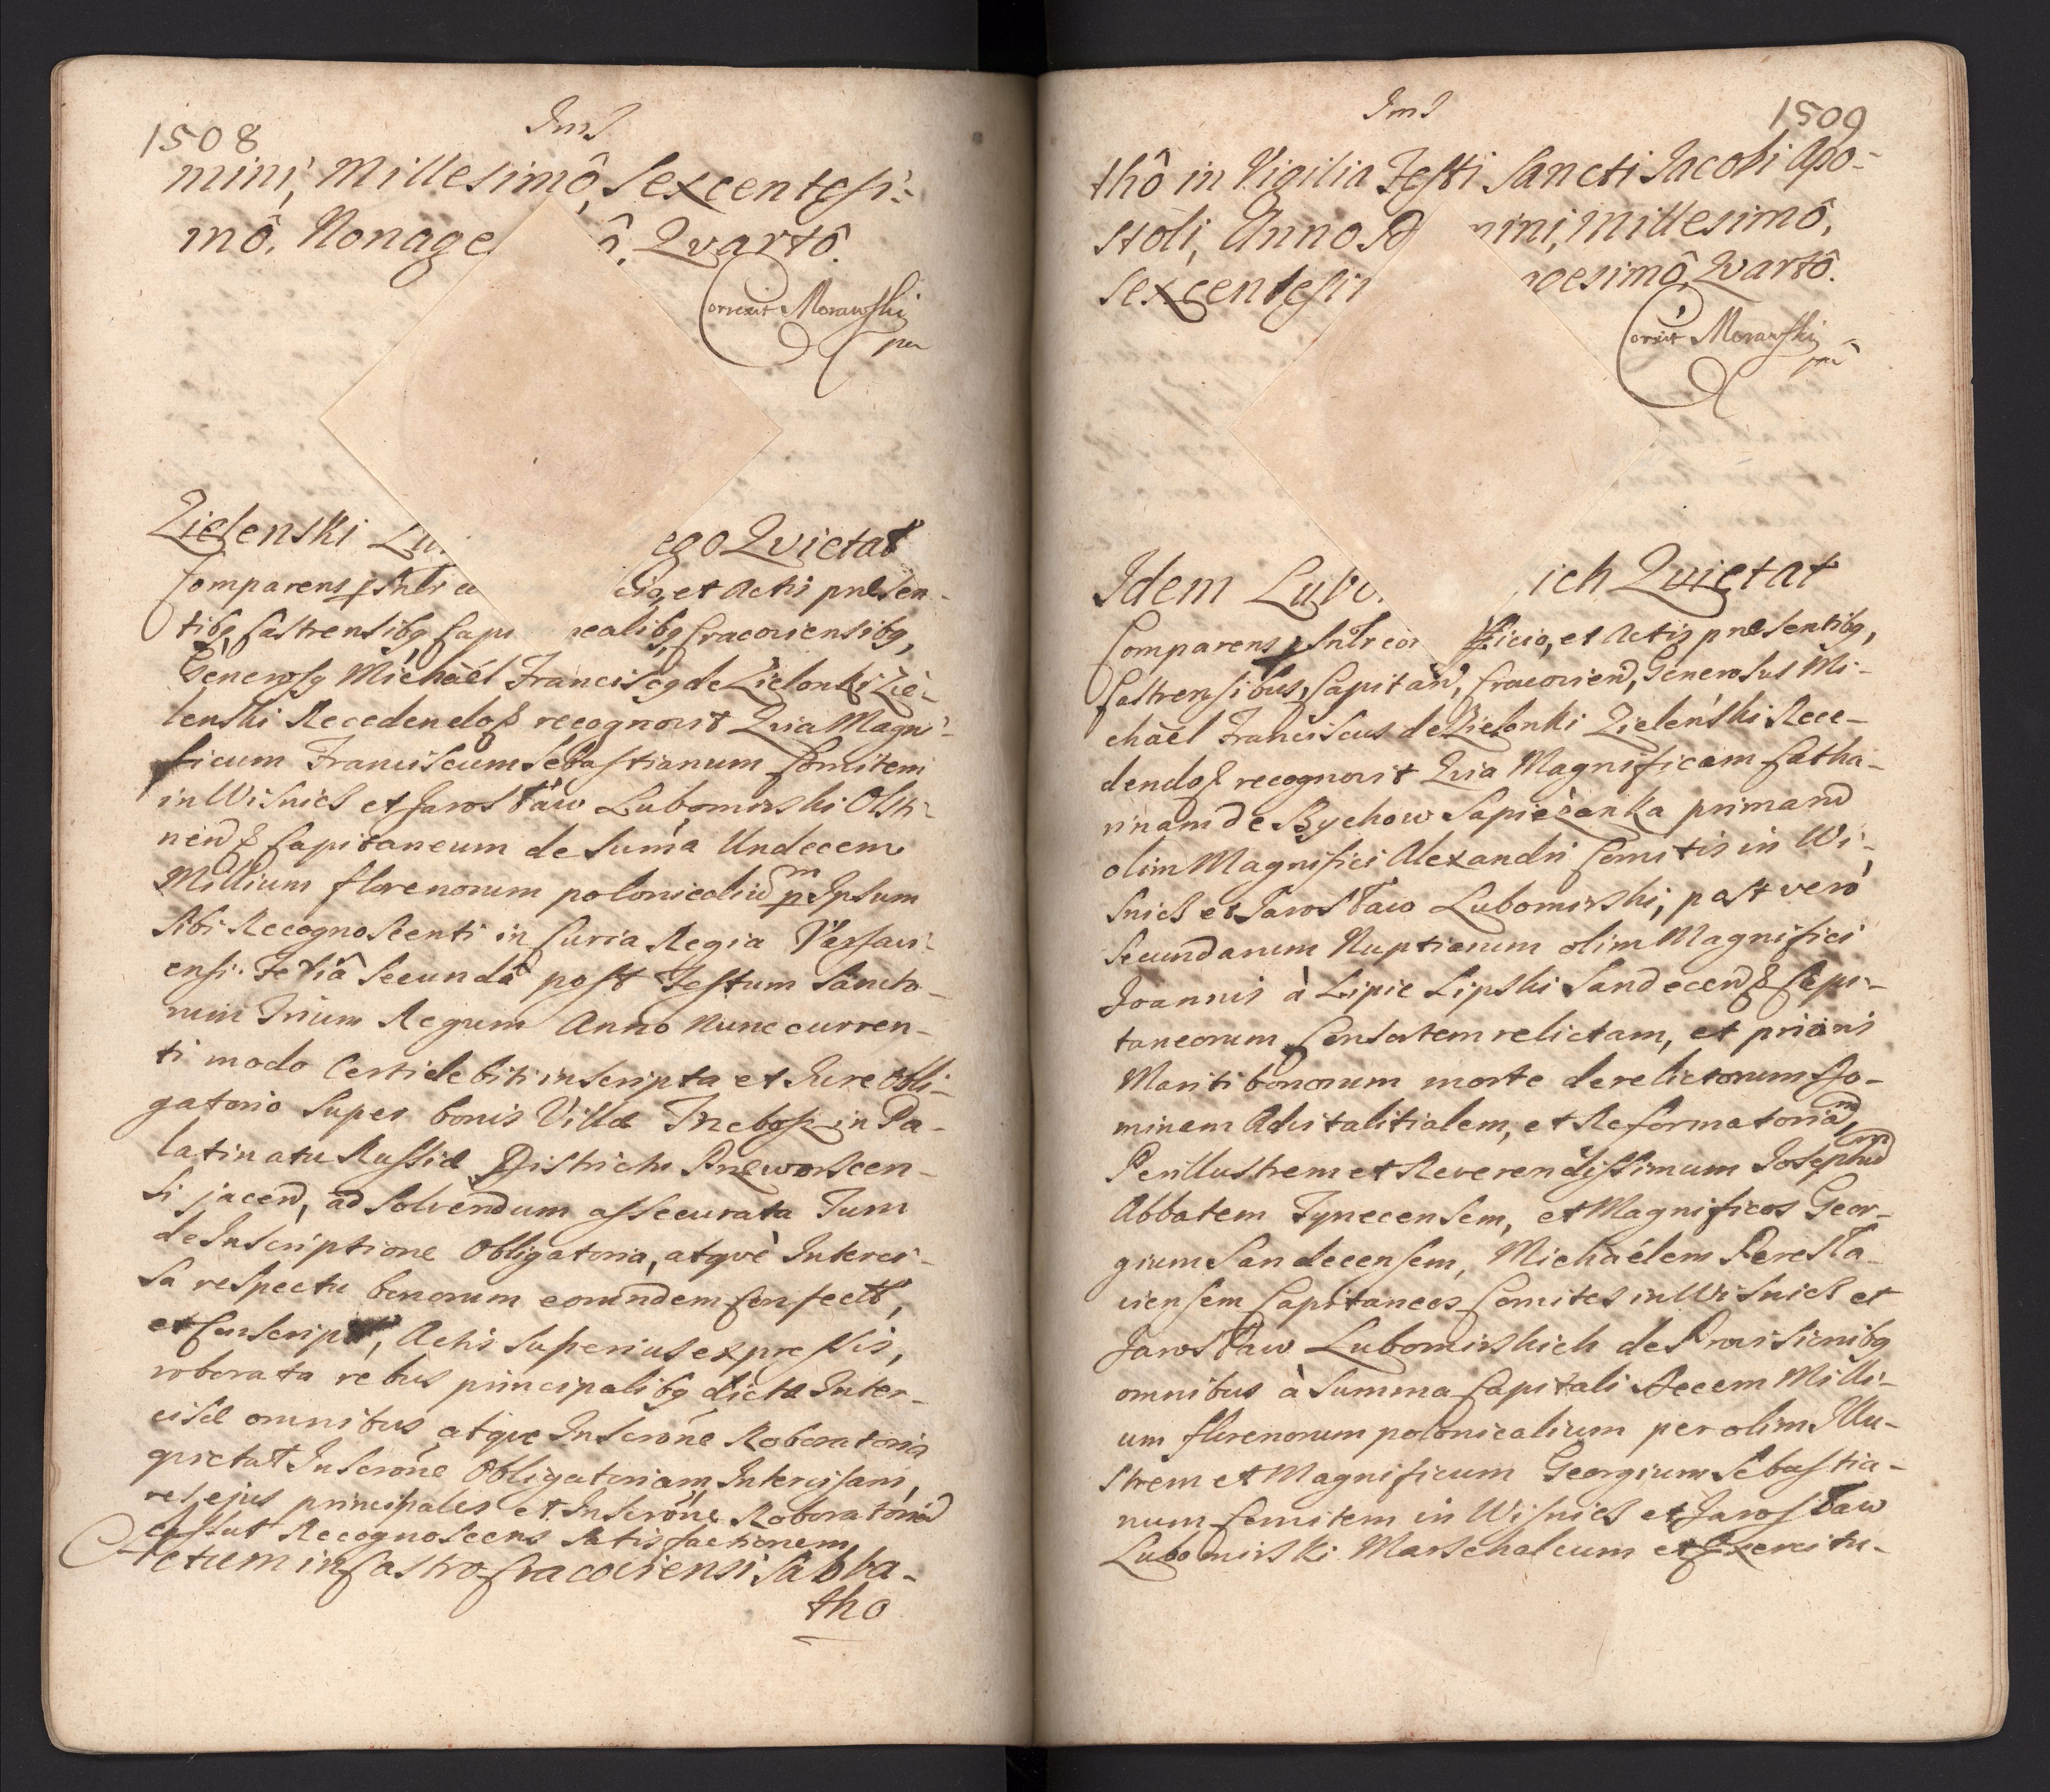 1508
Ims
mini, Millesimô, Sexcentesi-
mô, Nonage ô, Qvartô.
Correxit Morawski
Zielenski Lu ego Qvietat
Comparens et Actis præsen-
tibq Castrensibq Capi nealibq Cracoviensibq,
Generosq Michaël Franciscq de Zielonki Zie-
lenski Recedendo& recognovit Qvia Magni-
ficum Franciscum Sebastianum Comitem
in Wisnicz et Jarosław Lubomirski Olsti-
nen& Capitaneum de Suma Undecem
Millium florenorum polonicaliu p Ipsum
sibi Recognoscenti in Curia Regia Varsavi-
ensi Feriâ Secundâ post Festum Sancto-
rum Trium Regum Anno Nunc curren-
ti modo Certi debiti inscripta et Jure Obli-
gatorio super bonis Villæ Trzeboss in Pa-
latinatu Russiæ Districtu Przeworscen-
si jacen, ad solvendum assecurata Tum
de Inscriptione Obligatoria, atqvè Interci-
sa respectu bonorum eorundem confect,
et Conscript, Actis superius expressis,
roborata rebus principalibq dictæ Inter-
cisæ omnibus atqve Inscrõne Roboratoria
qvietat Inscrõne Obligatoriam, Intercisam,
res ejus principales et Inscrõne Roboratoria
cassat Recognoscens satisfactionem
Actum in Castro Cracoviensi Sabba-
tho
Ims
1509
thô in Vigilia Festi Sancti Jacobi Apo-
stoli, Anno Do mini, Millesimô,
Sexcentesi gesimô, Qvartô.
Correxit Morawski
Idem Lubo ich Qvietat
Comparens ficio, et Actis præsentibq,
Castrensibus, Capitan, Cracovien, Generosus Mi-
chaël Franciscus de Zielonki Zieleński Rece-
dendo& recognovit Qvia Magnificam Catha-
rinam de Bychow Sapieżanka priman
olim Magnifici Alexandri Comitis in Wi-
snicz et Jarosław Lubomirski, post verò
secundarum Nuptiarum olim Magnifici
Joannis à Lipie Lipski Sandecen& Capi-
taneorum Consortem relictam, et prioris
Mariti bonorum morte derelictorum Do-
minam Advitalitialem, et Reformatoria,
Perillustrem et Reverendissimum Josephu
Abbatem Tynecensem, et Magnificos Geor-
gium Sandecensem, Michaëlem Peresła-
viensem Capitaneos Comites in Wisnicz et
Jarosław Lubomirskich de Provisionibq
omnibus à Summa Capitali Decem Milli-
um florenorum polonicalium per olim Illu-
strem et Magnificum Georgium Sebastia-
num Comitem in Wisnicz et Jarosław
Lubomirski Marschalcum et Exercitu-